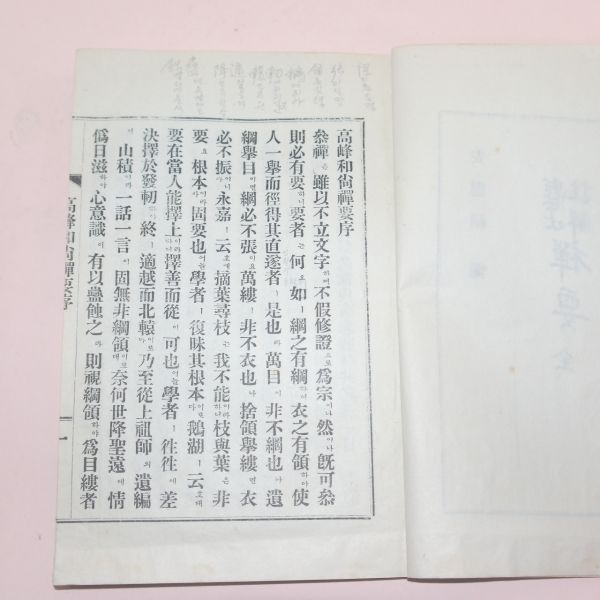 高峰和尙禪要序
叅禪은雖以不立文字하며不假修證으로爲宗이나然이나旣可叅
則必有要하니要者는何오如ㅣ綱之有綱하며衣之有領하야使
人一擧而徑得其直遂者ㅣ是也라萬目이非不綱也나遺
綱擧目이면綱必不張이요萬縷ㅣ非不衣也나捨領擧縷면衣
必不振이니永嘉ㅣ云호대摘葉尋枝는我不能이라하니枝與葉은非
要요根本사固要也어늘學者ㅣ復昧其根本이로다鵝湖ㅣ云호대
要在當人能擇上이라하니擇善而從이可也어늘學者ㅣ徃徃에差
決擇於發軔하야終ㅣ適越而北轅이로다乃至從上祖師의遺編
이山積이라一話一言이固無非綱領이로대奈何世降聖遠에情
僞日滋하야心意識이有以蠱蝕之라則視綱領하야爲目縷者
高峰和尙禪要序
一